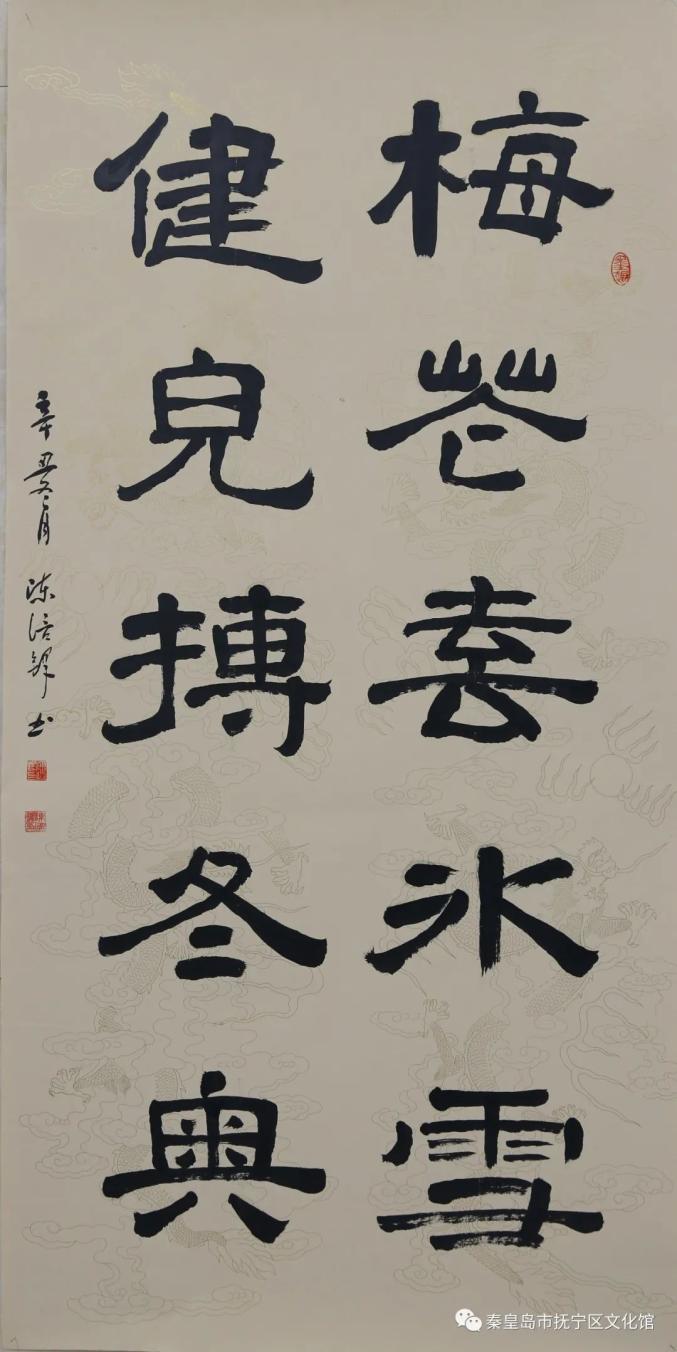 梅花喜冰雪
健兒搏冬奥
辛丑冬月 陈 书
秦皇岛市抚宁区文化馆